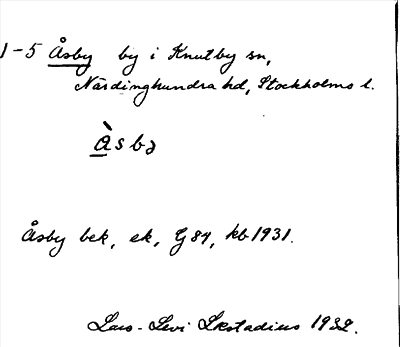 1-5 Åsby by i Knutby sn,
Närdinghundra hd, Stockholms l.
å̀sbə
Åsby bek, ek, G84, kb 1931.
Lars-Levi Læstadius 1932.